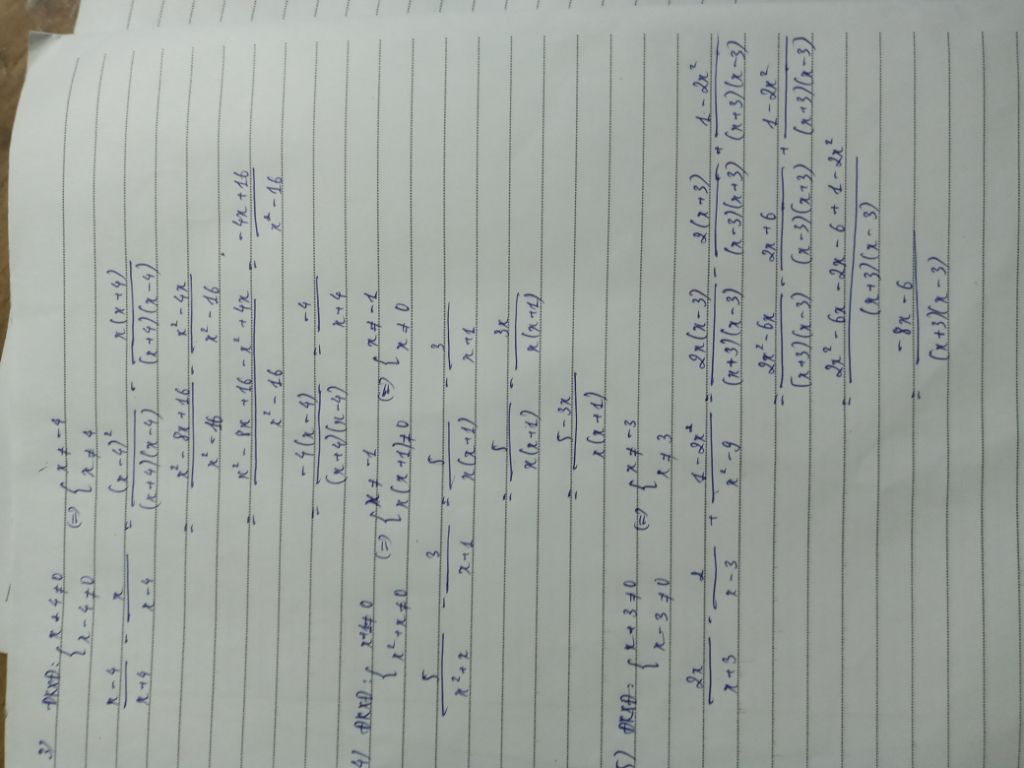 3) ĐKXĐ: { x+4≠0 (=) { x≠-4
{ x-4≠0 { x≠4
(x-4)/(x+4) - x/(x-4) = (x-4)²/((x+4)(x-4)) - x(x+4)/((x+4)(x-4))
= (x²-8x+16)/(x²-16) - (x²-4x)/(x²-16)
= (x²-8x+16-x²+4x)/(x²-16) = (-4x+16)/(x²-16)
= -4(x-4)/((x+4)(x-4)) = -4/(x+4)
4) ĐKXĐ: { x+1≠0 (=) { x≠-1 (=) { x≠-1
{ x²+x≠0 { x(x+1)≠0 { x≠0
5/(x²+x) - 3/(x+1) = 5/(x(x+1)) - 3/(x+1)
= 5/(x(x+1)) - 3x/(x(x+1))
= (5-3x)/(x(x+1))
5) ĐKXĐ: { x+3≠0 (=) { x≠-3
{ x-3≠0 { x≠3
2x/(x+3) - 2/(x-3) + (1-2x²)/(x²-9) = 2x(x-3)/((x+3)(x-3)) - 2(x+3)/((x-3)(x+3)) + (1-2x²)/((x+3)(x-3))
= (2x²-6x)/((x+3)(x-3)) - (2x+6)/((x-3)(x+3)) + (1-2x²)/((x+3)(x-3))
= (2x²-6x-2x-6+1-2x²)/((x+3)(x-3))
= (-8x-6)/((x+3)(x-3))